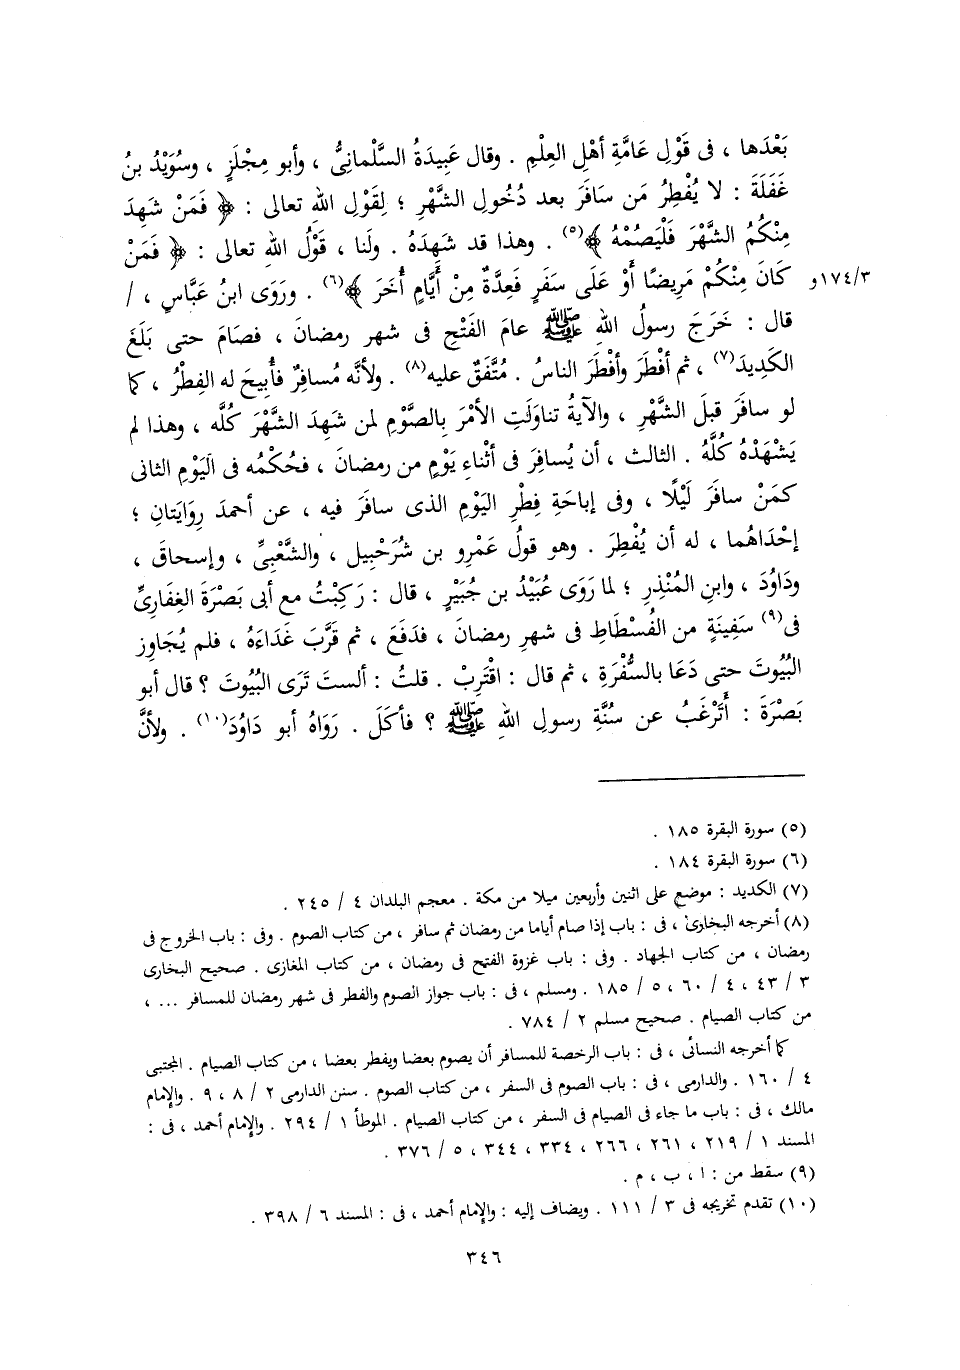 بَعْدَها ، فى قَوْلِ عَامَّةِ أهْلِ العِلْمِ . وقال عَبِيدَةُ السَّلْمانِىُّ ، وأبو مِجْلَزٍ ، وسُوَيْدُ بنُ
غَفَلَةَ : لا يُفْطِرُ مَن سَافَرَ بعد دُخُولِ الشَّهْرِ ؛ لِقَوْلِ اللهِ تعالى : ﴿ فَمَنْ شَهِدَ
مِنْكُمُ الشَّهْرَ فَلْيَصُمْهُ ﴾(٥) . وهذا قد شَهِدَهُ . ولَنا ، قَوْلُ اللهِ تعالى : ﴿ فَمَنْ
٣/١٧٤و كَانَ مِنْكُمْ مَرِيضًا أَوْ عَلَى سَفَرٍ فَعِدَّةٌ مِنْ أَيَّامٍ أُخَرَ ﴾(٦) . ورَوَى ابنُ عَبَّاسٍ ، /
قال : خَرَجَ رسولُ اللهِ ﷺ عامَ الفَتْحِ فى شهر رمضانَ ، فصَامَ حتى بَلَغَ
الكَدِيدَ(٧) ، ثم أفْطَرَ وأفْطَرَ الناسُ . مُتَّفَقٌ عليه(٨) . ولأنَّه مُسافِرٌ فأُبِيحَ له الفِطْرُ ، كما
لو سافَرَ قبلَ الشَّهْرِ ، والآيةُ تناوَلَتِ الأمْرَ بِالصَّوْمِ لمن شَهِدَ الشَّهْرَ كُلَّه ، وهذا لم
يَشْهَدْهُ كُلَّهُ . الثالث ، أن يُسافِرَ فى أثْناءِ يَوْمٍ من رمضانَ ، فحُكْمُه فى اليَوْمِ الثانى
كمَنْ سافَرَ لَيْلًا ، وفى إباحَةِ فِطْرِ اليَوْمِ الذى سافَرَ فيه ، عن أحمدَ رِوَايَتانِ ؛
إحْدَاهُما ، له أن يُفْطِرَ . وهو قولُ عَمْرِو بن شُرَحْبِيل ، والشَّعْبِىِّ ، وإسحاقَ ،
ودَاوُدَ ، وابنِ المُنْذِرِ ؛ لما رَوَى عُبَيْدُ بن جُبَيْرٍ ، قال : رَكِبْتُ مع أبى بَصْرَةَ الغِفَارِىِّ
فى(٩) سَفِينَةٍ من الفُسْطَاطِ فى شهرِ رمضانَ ، فدَفَعَ ، ثم قَرَّبَ غَدَاءَهُ ، فلم يُجَاوِز
البُيُوتَ حتى دَعَا بالسُّفْرَةِ ، ثم قال : اقْتَرِبْ . قلتُ : ألستَ تَرَى البُيُوتَ ؟ قال أبو
بَصْرَةَ : أَتَرْغَبُ عن سُنَّةِ رسولِ اللهِ ﷺ ؟ فأكَلَ . رَوَاهُ أبو دَاوُدَ(١٠) . ولأنَّ
(٥) سورة البقرة ١٨٥ .
(٦) سورة البقرة ١٨٤ .
(٧) الكديد : موضع على اثنين وأربعين ميلا من مكة . معجم البلدان ٤ / ٢٤٥ .
(٨) أخرجه البخارى ، فى : باب إذا صام أياما من رمضان ثم سافر ، من كتاب الصوم . وفى : باب الخروج فى
رمضان ، من كتاب الجهاد . وفى : باب غزوة الفتح فى رمضان ، من كتاب المغازى . صحيح البخارى
٣ / ٤٣ ، ٤ / ٦٠ ، ٥ / ١٨٥ . ومسلم ، فى : باب جواز الصوم والفطر فى شهر رمضان للمسافر ... ،
من كتاب الصيام . صحيح مسلم ٢ / ٧٨٤ .
كما أخرجه النسائى ، فى : باب الرخصة للمسافر أن يصوم بعضا ويفطر بعضا ، من كتاب الصيام . المجتبى
٤ / ١٦٠ . والدارمى ، فى : باب الصوم فى السفر ، من كتاب الصوم . سنن الدارمى ٢ / ٨ ، ٩ . والإمام
مالك ، فى : باب ما جاء فى الصيام فى السفر ، من كتاب الصيام . الموطأ ١ / ٢٩٤ . والإمام أحمد ، فى :
المسند ١ / ٢١٩ ، ٢٦١ ، ٢٦٦ ، ٣٣٤ ، ٣٤٤ ، ٥ / ٣٧٦ .
(٩) سقط من : ا ، ب ، م .
(١٠) تقدم تخريجه فى ٣ / ١١١ . ويضاف إليه : والإمام أحمد ، فى : المسند ٦ / ٣٩٨ .
٣٤٦